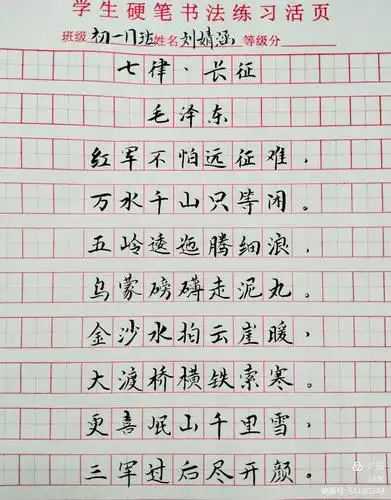 学生硬笔书法练习活页
班级 初一17班 姓名 刘婧涵 等级分
七律·长征
毛泽东
红军不怕远征难，
万水千山只等闲。
五岭逶迤腾细浪，
乌蒙磅礴走泥丸。
金沙水拍云崖暖，
大渡桥横铁索寒。
更喜岷山千里雪，
三军过后尽开颜。